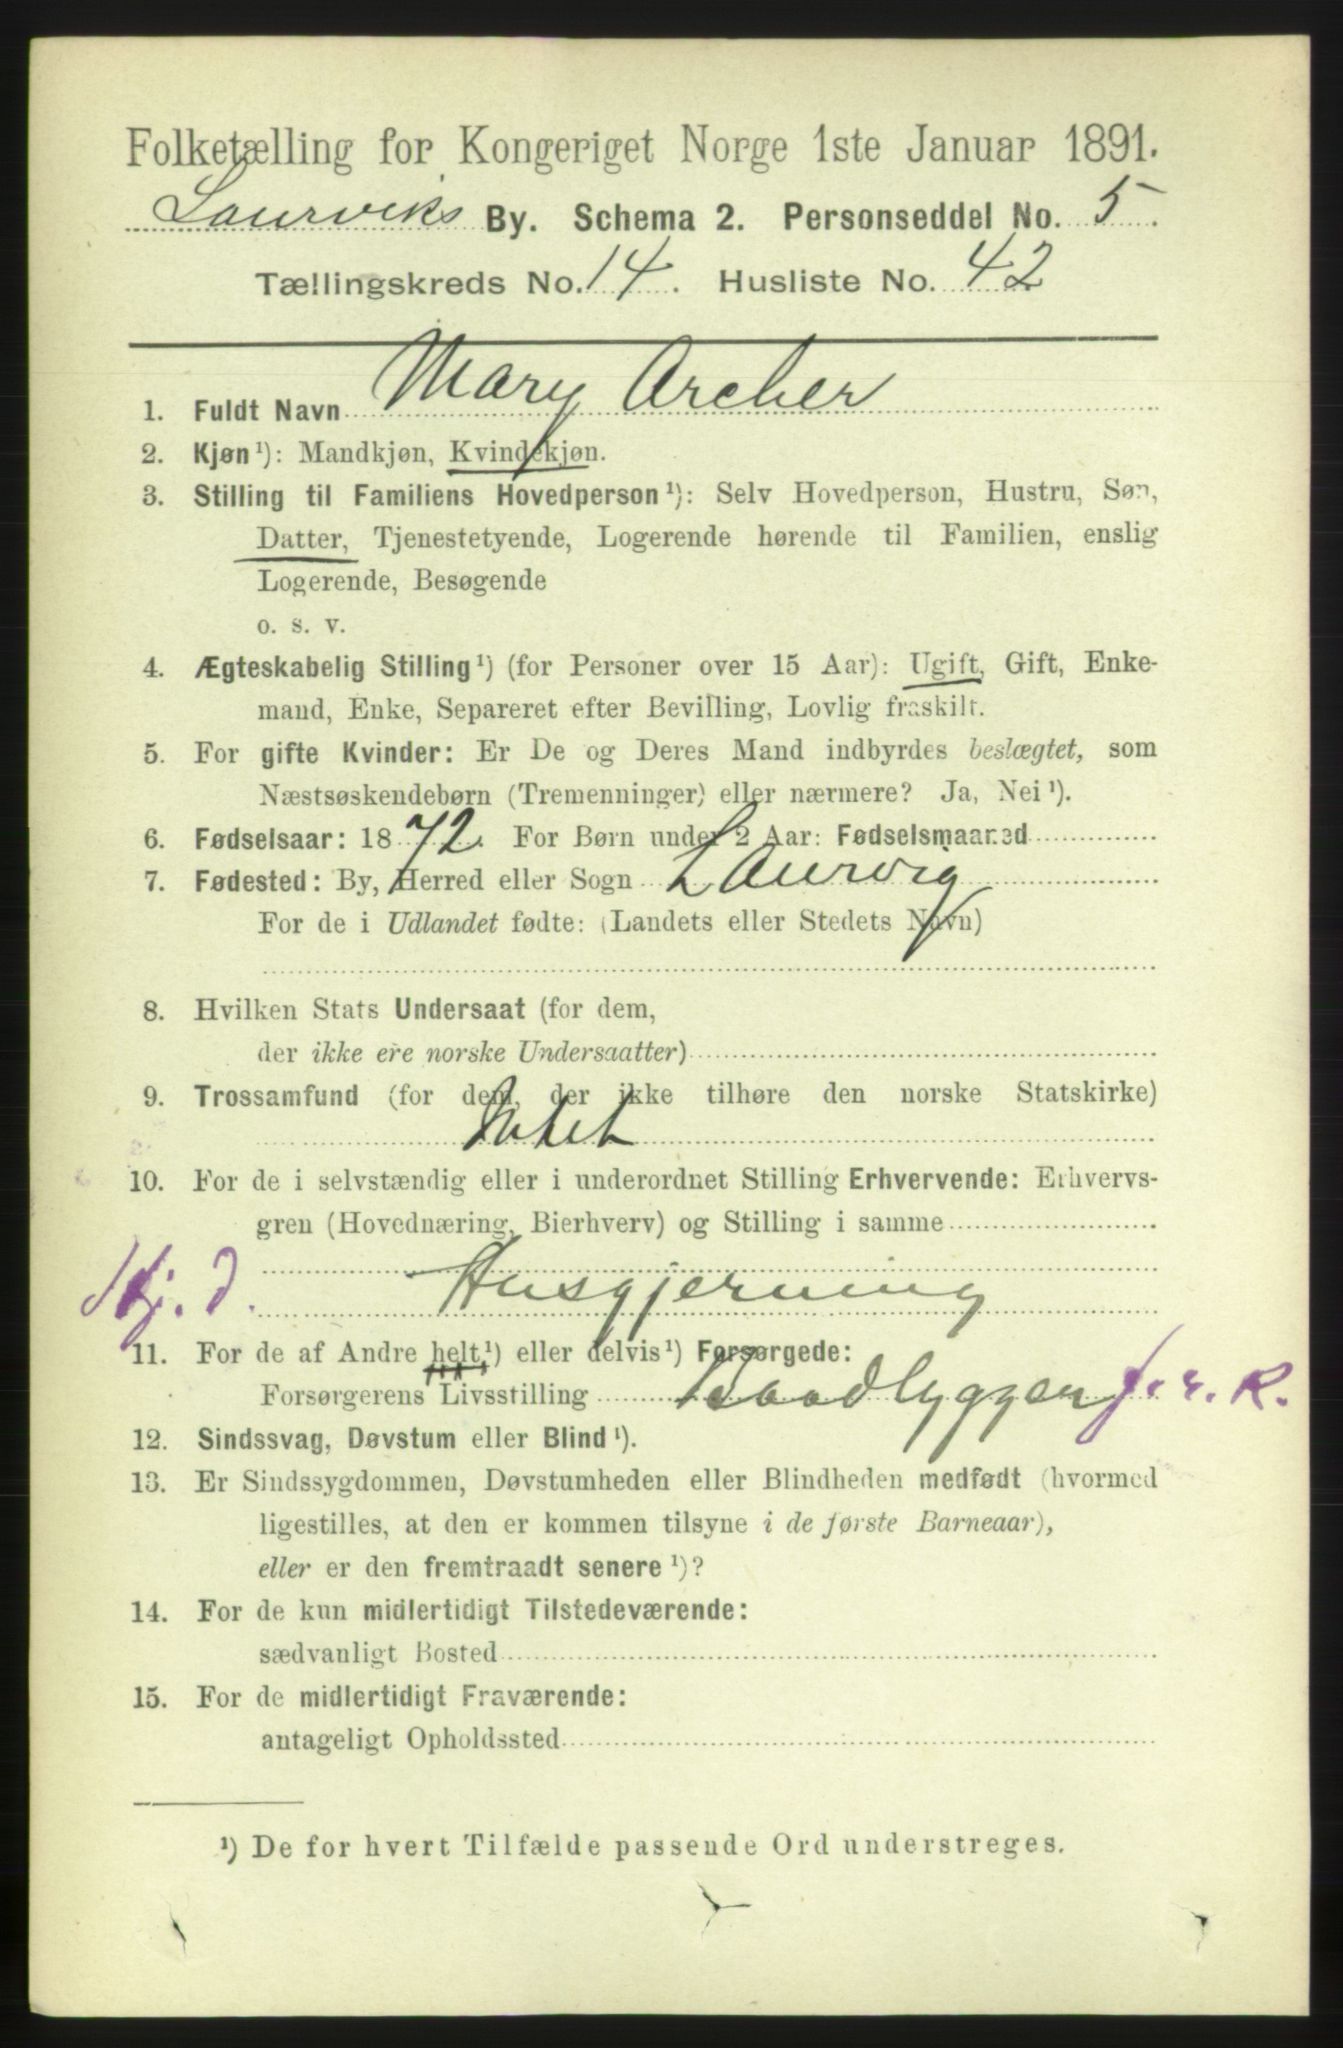 Folketælling for Kongeriget Norge 1ste Januar 1891.
Laurviks By. Schema 2. Personseddel No. 5.
Tællingskreds No. 14. Husliste No. 42
1. Fuldt Navn Mary Archer
2. Kjøn¹): Mandkjøn, Kvindekjøn.
3. Stilling til Familiens Hovedperson¹): Selv Hovedperson, Hustru, Søn,
Datter, Tjenestetyende, Logerende hørende til Familien, enslig
Logerende, Besøgende
o. s. v.
4. Ægteskabelig Stilling¹) (for Personer over 15 Aar): Ugift, Gift, Enke-
mand, Enke, Separeret efter Bevilling, Lovlig fraskilt.
5. For gifte Kvinder: Er De og Deres Mand indbyrdes beslægtet, som
Næstsøskendebørn (Tremenninger) eller nærmere? Ja, Nei¹).
6. Fødselsaar: 1872. For Børn under 2 Aar: Fødselsmaaned
7. Fødested: By, Herred eller Sogn Laurvig
For de i Udlandet fødte: (Landets eller Stedets Navn)
8. Hvilken Stats Undersaat (for dem,
der ikke ere norske Undersaatter)
9. Trossamfund (for dem, der ikke tilhøre den norske Statskirke)
Intet
10. For de i selvstændig eller i underordnet Stilling Erhvervende: Erhvervs-
gren (Hovednæring, Bierhverv) og Stilling i samme
Hj. d. Husgjerning
11. For de af Andre helt¹) eller delvis¹) Forsørgede:
Forsørgerens Livsstilling Baadbygger f. r. k.
12. Sindssvag, Døvstum eller Blind¹).
13. Er Sindssygdommen, Døvstumheden eller Blindheden medfødt (hvormed
ligestilles, at den er kommen tilsyne i de første Barneaar),
eller er den fremtraadt senere¹)?
14. For de kun midlertidigt Tilstedeværende:
sædvanligt Bosted
15. For de midlertidigt Fraværende:
antageligt Opholdssted
¹) De for hvert Tilfælde passende Ord understreges.